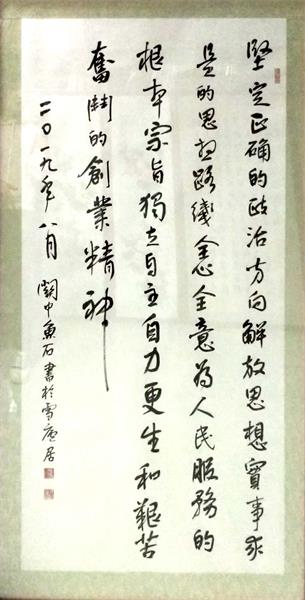 堅定正确的政治方向解放思想實事求
是的思想路綫全心全意為人民服務的
根本宗旨獨立自主自力更生和艱苦
奮鬥的創業精神
二〇一九年八月關中魚石書於雪庵居